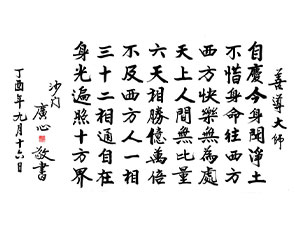 善導大師
自慶今身聞淨土
不惜身命往西方
西方快樂無為處
天上人間無比量
六天相勝億萬倍
不及西方人一相
三十二相通自在
身光遍照十方界
沙門
廣心 敬書
丁酉年九月十六日